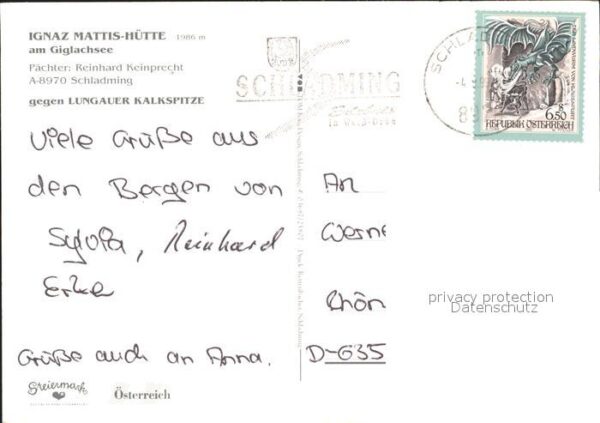 IGNAZ MATTIS-HÜTTE 1986 m
am Giglachsee
Pächter: Reinhard Keinprecht
A-8970 Schladming
gegen LUNGAUER KALKSPITZE
SCHLADMING
SCHLADM
6.50
REPUBLIK ÖSTERREICH
Viele Grüße aus
den Bergen von
Sylvia, Reinhard
Erka
Grüße auch an Anna.
An
Werne
Rhön
D-635
privacy protection
Datenschutz
Steiermark
Österreich